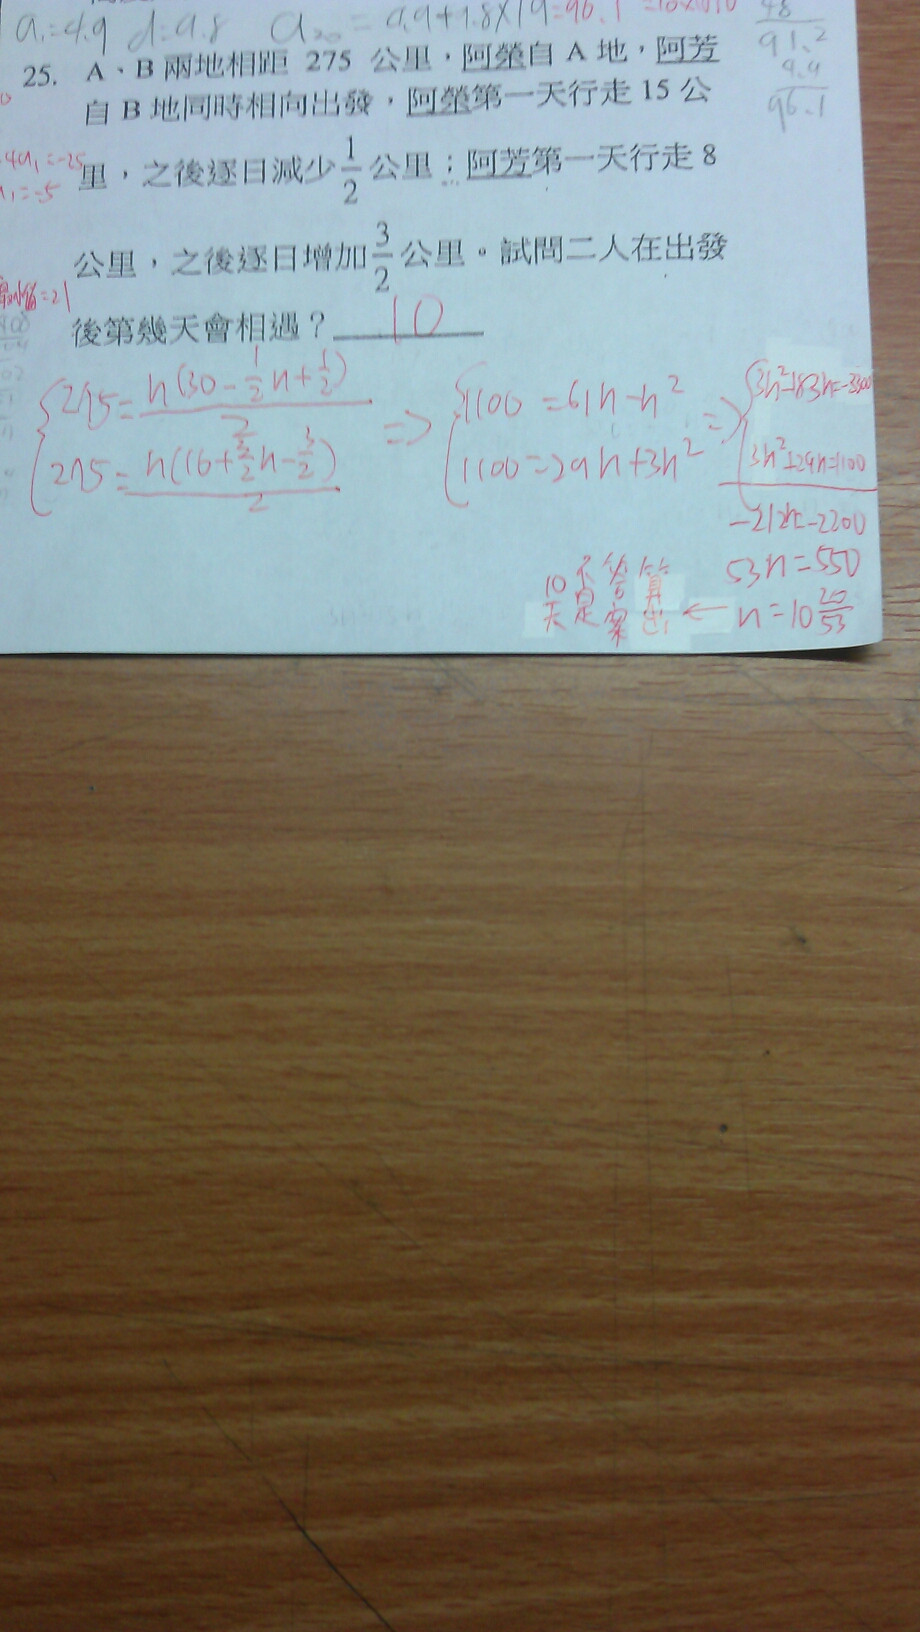 a₁=4.9 d=9.8 a₂₀=4.9+9.8×19=96.1
91.2
4.9
96.1
25. A、B 兩地相距 275 公里，阿榮自 A 地，阿芳
自 B 地同時相向出發，阿榮第一天行走 15 公
里，之後逐日減少 1/2 公里；阿芳第一天行走 8
公里，之後逐日增加 3/2 公里。試問二人在出發
後第幾天會相遇？ 10
4a₁=-25
a₁=-5
=21
275=n(30-1/2n+1/2)/2 => 1100=61n-n² => 3n²-183n=-3300
275=n(16+3/2n-3/2)/2 1100=29n+3n² 3n²+29n=1100
-212n=-2200
53n=550
n=10 20/53
← 算出
答案
不是
10天